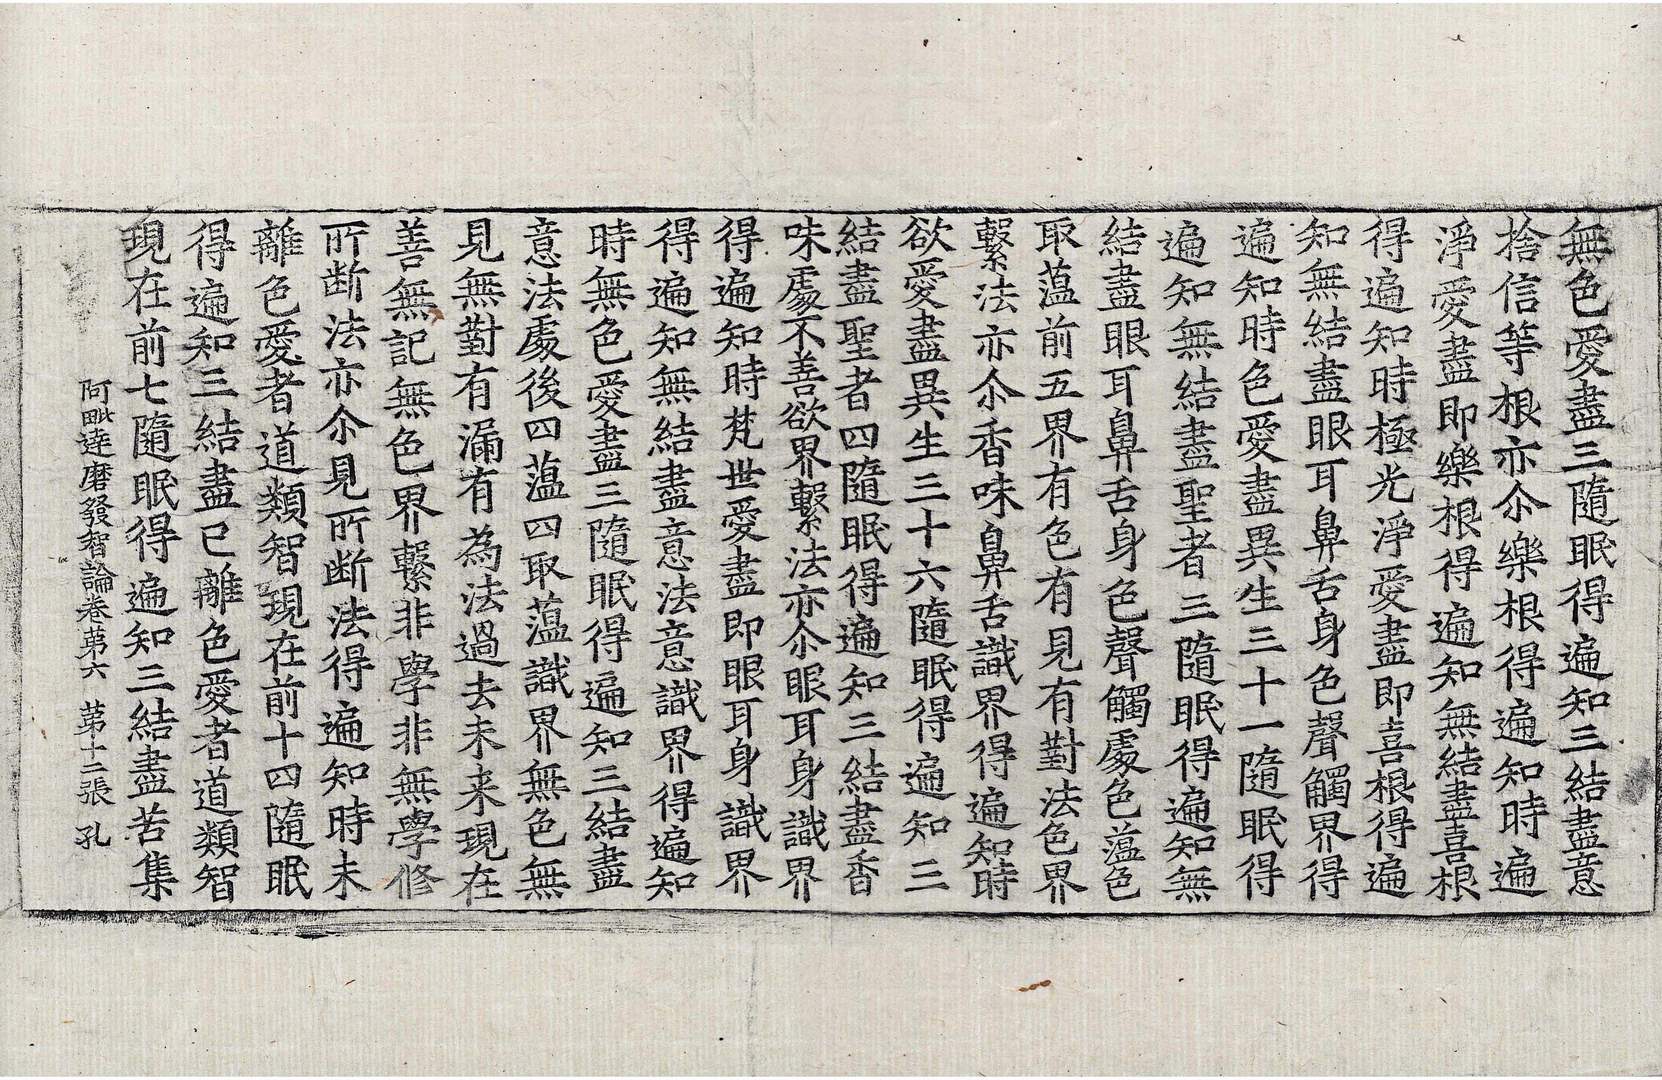 無色愛盡三隨眠得遍知三結盡意
捨信等根亦尒樂根得遍知時遍
淨愛盡即樂根得遍知無結盡喜根
得遍知時極光淨愛盡即喜根得遍
知無結盡眼耳鼻舌身色聲觸界得
遍知時色愛盡異生三十一隨眠得
遍知無結盡聖者三隨眠得遍知無
結盡眼耳鼻舌身色聲觸處色薀色
取薀前五界有色有見有對法色界
繫法亦尒香味鼻舌識界得遍知時
欲愛盡異生三十六隨眠得遍知三
結盡聖者四隨眠得遍知三結盡香
味處不善欲界繫法亦尒眼耳身識界
得遍知時梵世愛盡即眼耳身識界
得遍知無結盡意法意識界得遍知
時無色愛盡三隨眠得遍知三結盡
意法處後四薀四取薀識界無色無
見無對有漏有為法過去未来現在
善無記無色界繫非學非無學修
所断法亦尒見所断法得遍知時未
離色愛者道類智現在前十四隨眠
得遍知三結盡已離色愛者道類智
現在前七隨眠得遍知三結盡苦集
阿毗達磨發智論卷苐六　苐十二張　孔